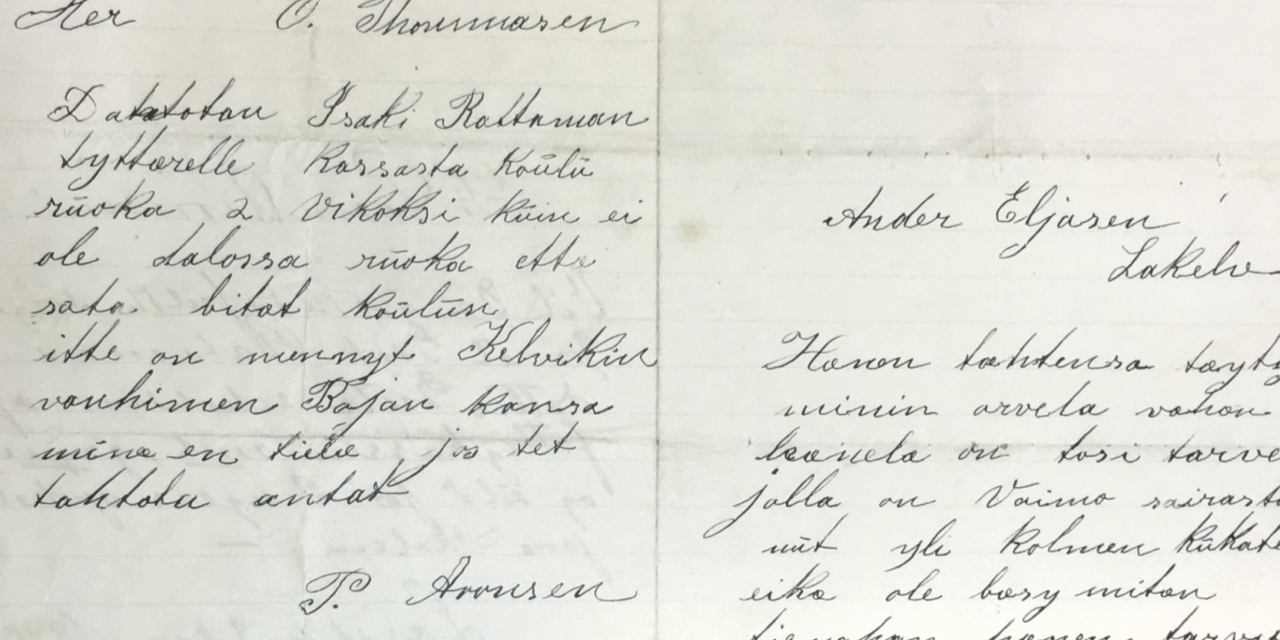 Her O. Thommasen
Datatotan Isaki Rattaman
tyttærelle kassasta koŭlŭ
rŭoka 2 vikoksi kŭin ei
ole dalossa rŭoka ette
sata bitat koŭlŭn
itte on mennyt Kelvikin
vanhimen Bajan kansa
mina en tiele jos tet
tahtota antat
P. Aronsen
Ander Eljasen
Lakelv
Hanen tahtensa tæyty
minin arvela vahan
on tosi tarve
jolla on Vaimo sairasta
nŭt yli kolmen kŭkate
eika ole bæsy mitæn